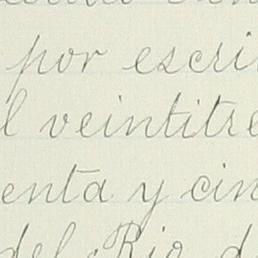 por escri
l veintitre
enta y cin
del Rio d